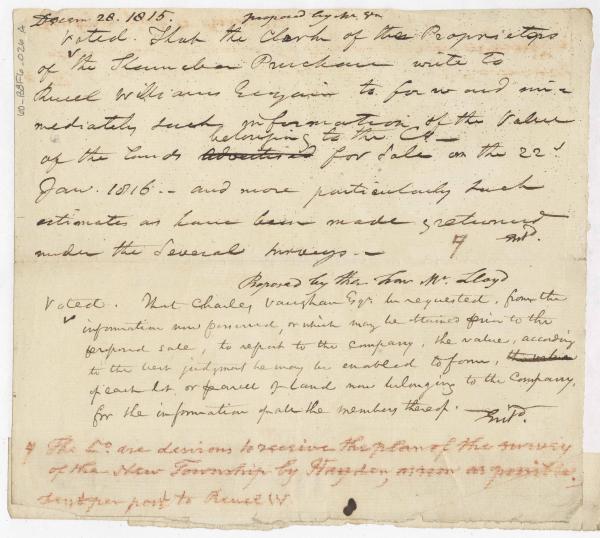 Decem 28. 1815. proposed by Mr Vn
Voted. That the Clerk of the Proprietors
of the Kennebec Purchase write to
Reuel Williams Esq again to forward im=
mediately such information of the Value
belonging to the Co
of the lands advertised for Sale on the 22d
Jany. 1816. - and more particularly such
estimates as have been made & returned
under the several surveys. -
Entd.
Proposed by the Hon Mr. Lloyd
Voted. That Charles Vaughan Esqr. be requested, from the
information now possessed, or which may be obtained prior to the
proposed sale, to report to the company, the value, according
to the best judgment he may be enabled to form, the value
of each lot or parcel of Land now belonging to the Company,
for the information of all the members thereof. -
Entd.
The Co. are desirous to receive the plan of the survey
of the New Township by Hayden, as soon as possible.
sent per post to Reuel W
WD-B8F6-026 A